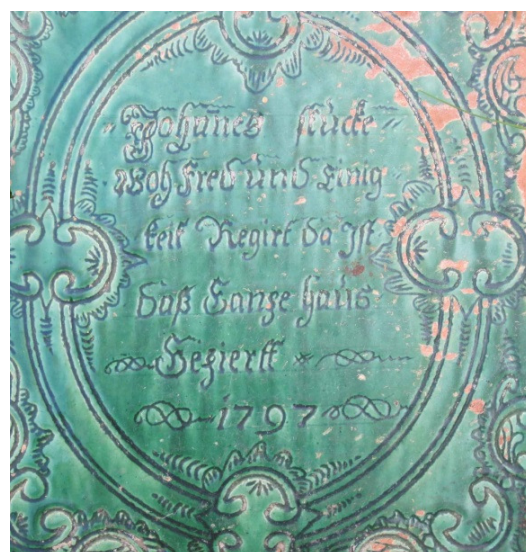 Johanes
Woh Fred und Einig
keit Regirt da Ist
daß Ganze Haus
Geziertt
1797